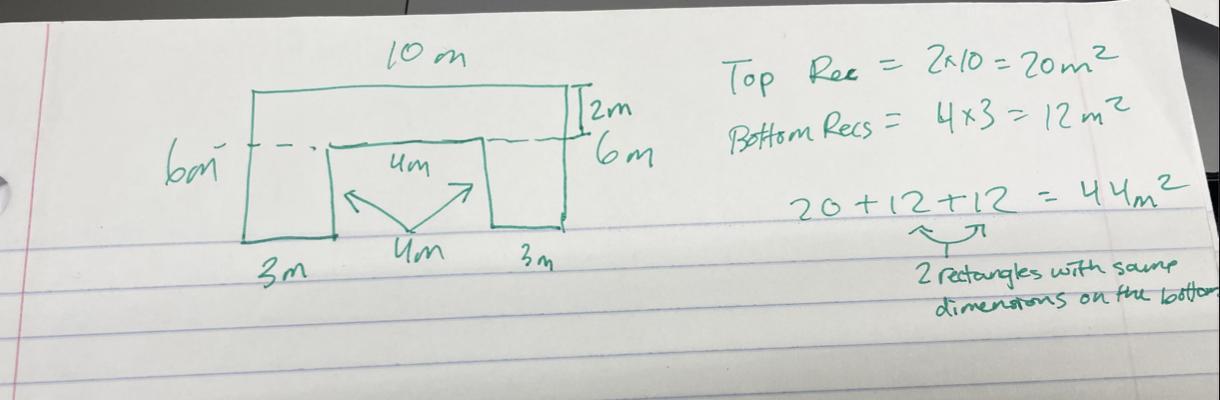 10 m
2m
6m
6m
4m
4m
3m
3m
Top Rec = 2×10 = 20m²
Bottom Recs = 4×3 = 12m²
20 + 12 + 12 = 44m²
2 rectangles with same
dimensions on the bottom